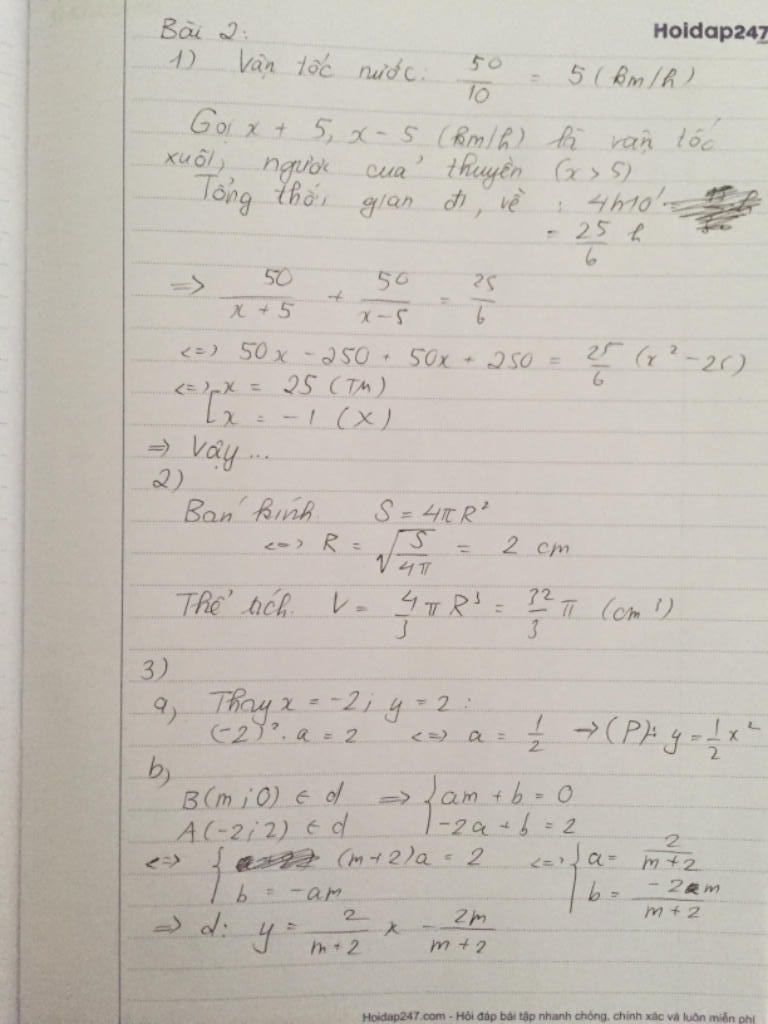 Hoidap247
Bài 2:
1) Vận tốc nước: 50/10 = 5 (km/h)
Gọi x + 5, x - 5 (km/h) là vận tốc
xuôi, ngược của thuyền (x > 5)
Tổng thời gian đi, về : 4h10'
= 25/6 h
=> 50/(x + 5) + 50/(x - 5) = 25/6
<=> 50x - 250 + 50x + 250 = 25/6 (x² - 25)
<=> [x = 25 (TM)
[x = -1 (X)
=> Vậy...
2)
Bán kính S = 4πR²
<=> R = √(S/4π) = 2 cm
Thể tích. V = 4/3 πR³ = 32/3 π (cm³)
3)
a, Thay x = -2; y = 2:
(-2)².a = 2 <=> a = 1/2 → (P): y = 1/2 x²
b,
B(m;0) ∈ d => {am + b = 0
A(-2;2) ∈ d {-2a + b = 2
<=> { (m+2)a = 2 <=> {a = 2/(m+2)
{b = -am {b = -2m/(m+2)
=> d: y = 2/(m+2) x - 2m/(m+2)
Hoidap247.com - Hỏi đáp bài tập nhanh chóng, chính xác và luôn miễn phí